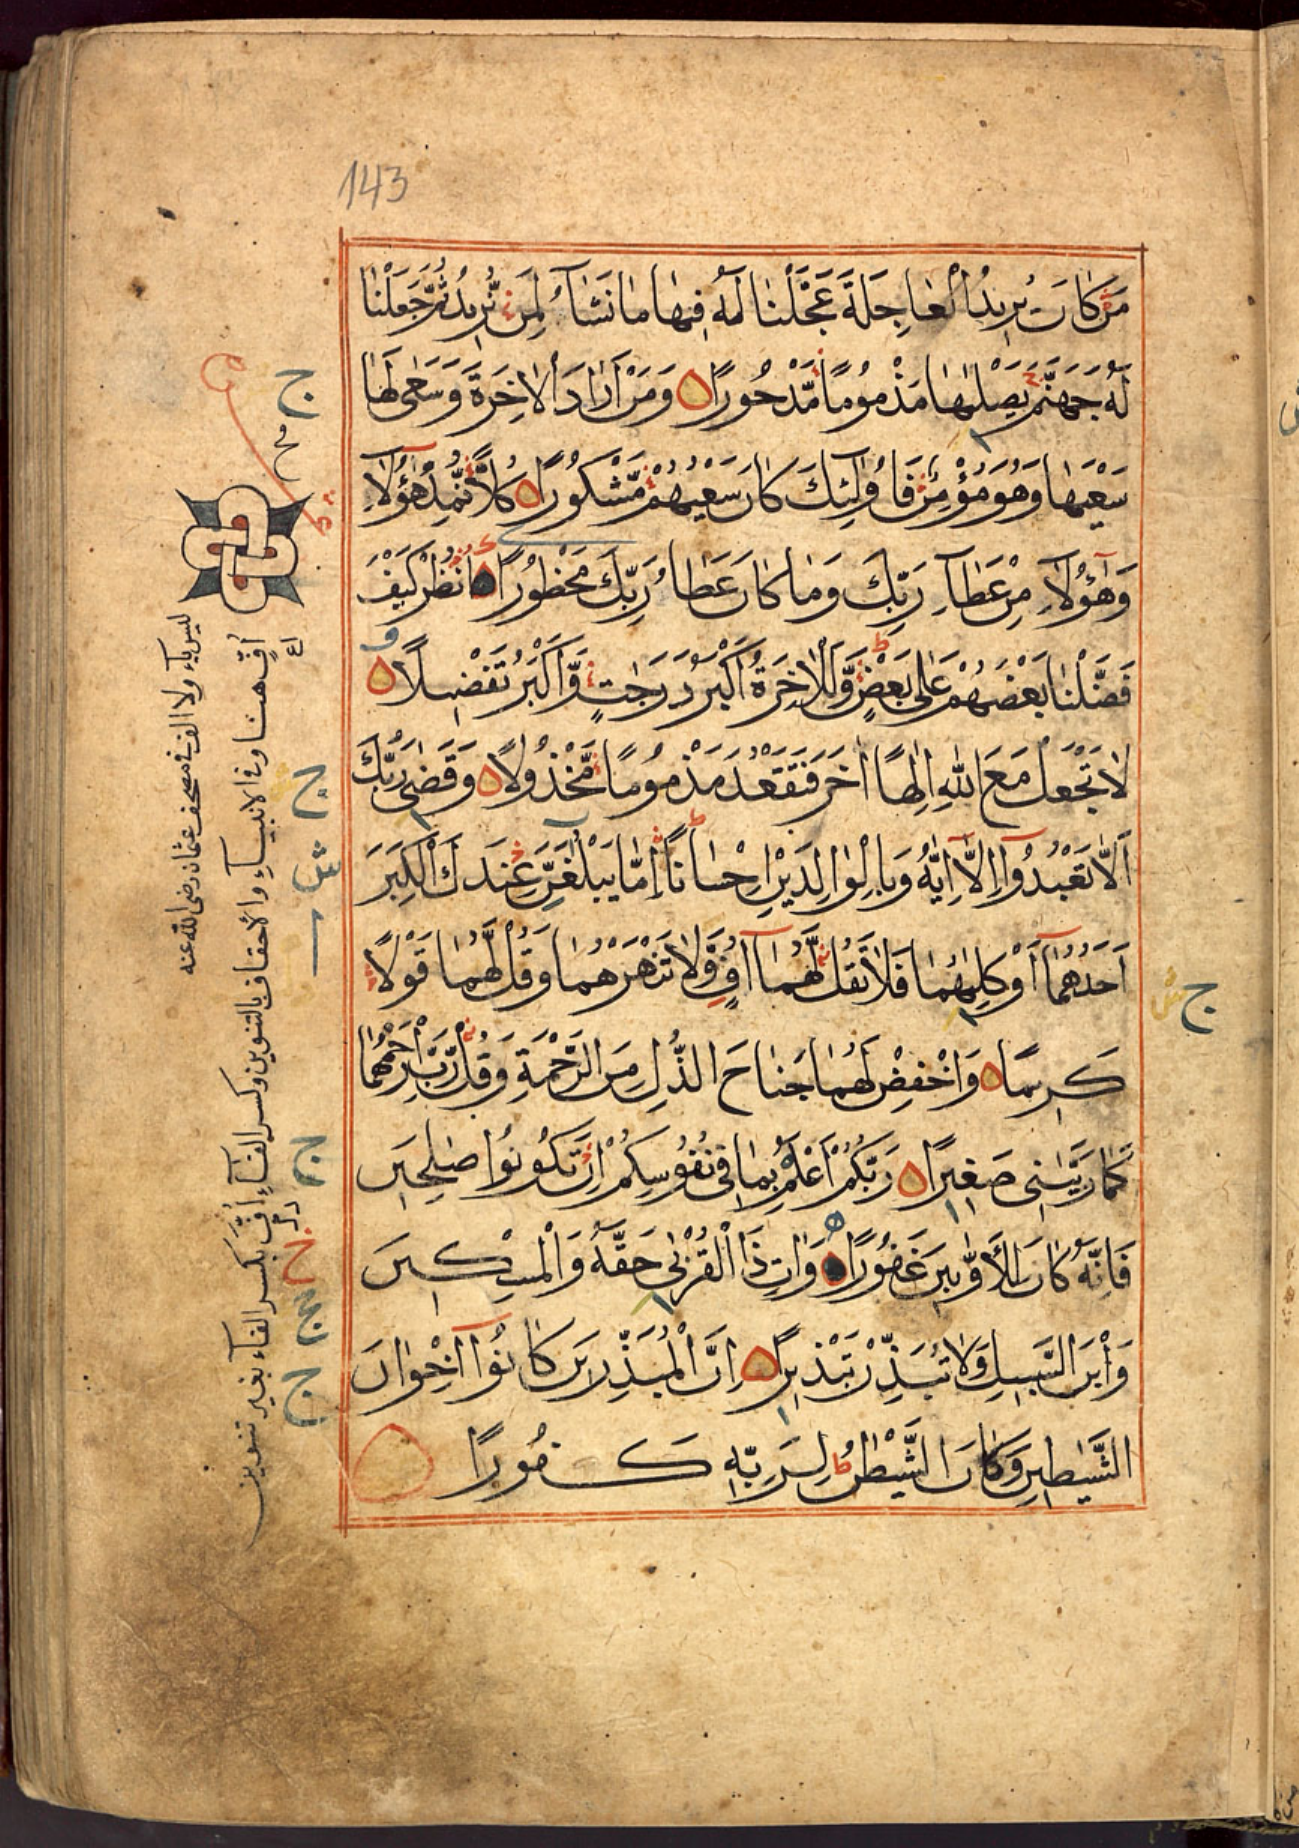 143
مَّن كَانَ يُرِيدُ الْعَاجِلَةَ عَجَّلْنَا لَهُ فِيهَا مَا نَشَآءُ لِمَن نُّرِيدُ ثُمَّ جَعَلْنَا
لَهُ جَهَنَّمَ يَصْلٰيهَا مَذْمُومًا مَّدْحُورًا وَمَنْ اَرَادَ الْاٰخِرَةَ وَسَعٰى لَهَا
سَعْيَهَا وَهُوَ مُؤْمِنٌ فَاُولٰٓئِكَ كَانَ سَعْيُهُمْ مَّشْكُورًا كُلًّا نُّمِدُّ هٰٓؤُلَآءِ
وَهٰٓؤُلَآءِ مِنْ عَطَآءِ رَبِّكَ وَمَا كَانَ عَطَآءُ رَبِّكَ مَحْظُورًا اُنْظُرْ كَيْفَ
فَضَّلْنَا بَعْضَهُمْ عَلٰى بَعْضٍ وَّلَلْاٰخِرَةُ اَكْبَرُ دَرَجٰتٍ وَّاَكْبَرُ تَفْضِيلًا
لَا تَجْعَلْ مَعَ اللّٰهِ اِلٰهًا اٰخَرَ فَتَقْعُدَ مَذْمُومًا مَّخْذُولًا وَقَضٰى رَبُّكَ
اَلَّا تَعْبُدُوٓا اِلَّآ اِيَّاهُ وَبِالْوَالِدَيْنِ اِحْسَانًا اِمَّا يَبْلُغَنَّ عِنْدَكَ الْكِبَرَ
اَحَدُهُمَآ اَوْ كِلٰيهُمَا فَلَا تَقُل لَّهُمَآ اُفٍّ وَّلَا تَنْهَرْهُمَا وَقُل لَّهُمَا قَوْلًا
كَرِيمًا وَاخْفِضْ لَهُمَا جَنَاحَ الذُّلِّ مِنَ الرَّحْمَةِ وَقُل رَّبِّ ارْحَمْهُمَا
كَمَا رَبَّيٰنِى صَغِيرًا رَبُّكُمْ اَعْلَمُ بِمَا فِى نُفُوسِكُمْ اِنْ تَكُونُوا صٰلِحِينَ
فَاِنَّهُ كَانَ لِلْاَوَّابِينَ غَفُورًا وَاٰتِ ذَا الْقُرْبٰى حَقَّهُ وَالْمِسْكِينَ
وَابْنَ السَّبِيلِ وَلَا تُبَذِّرْ تَبْذِيرًا اِنَّ الْمُبَذِّرِينَ كَانُوٓا اِخْوَانَ
الشَّيٰطِينِ وَكَانَ الشَّيْطٰنُ لِرَبِّهِ كَفُورًا
اُفٍّ هنا وفى الانبياء والاحقاف بالتنوين وكسر الفاء اُفِّ بكسر الفاء بغير تنوين
ليس ياء ولا الف فى مصحف عثمان رضى الله عنه